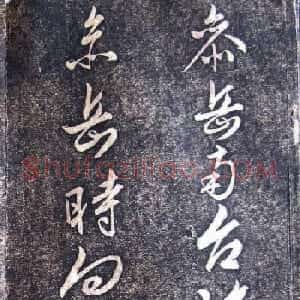 岳南台
岳時向
Shufaziliao.COM